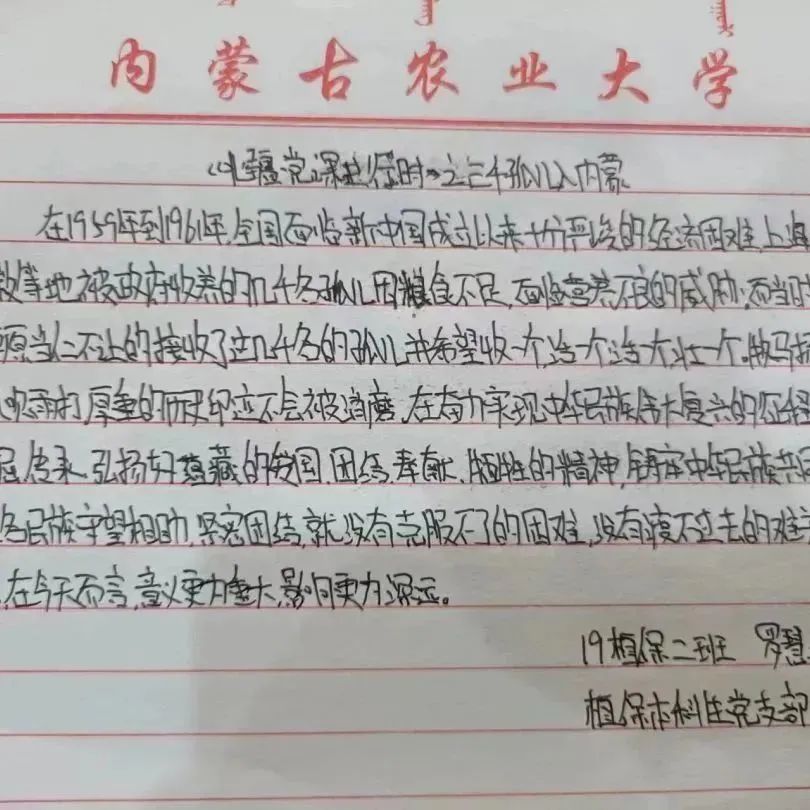 内蒙古农业大学
《北疆党课进行时》之三千孤儿入内蒙
在1959年到1961年,全国面临新中国成立以来十分严峻的经济困难,上海
等地被政府收养的几千名孤儿因粮食不足,面临营养不良的威胁,而当时
当仁不让的接收了这几千名的孤儿并希望收一个,活一个,活一个,壮一个。牧马
吹雨打,厚重的历史印迹不会被消磨,在奋力实现中华民族伟大复兴的征程
传承、弘扬好蕴藏的爱国、团结、奉献、牺牲的精神,铸牢中华民族共同
各民族守望相助,紧密团结,就没有克服不了的困难,没有渡不过去的难
,在今天而言,意义更为重大,影响更为深远。
19植保二班 罗慧
植保本科生党支部